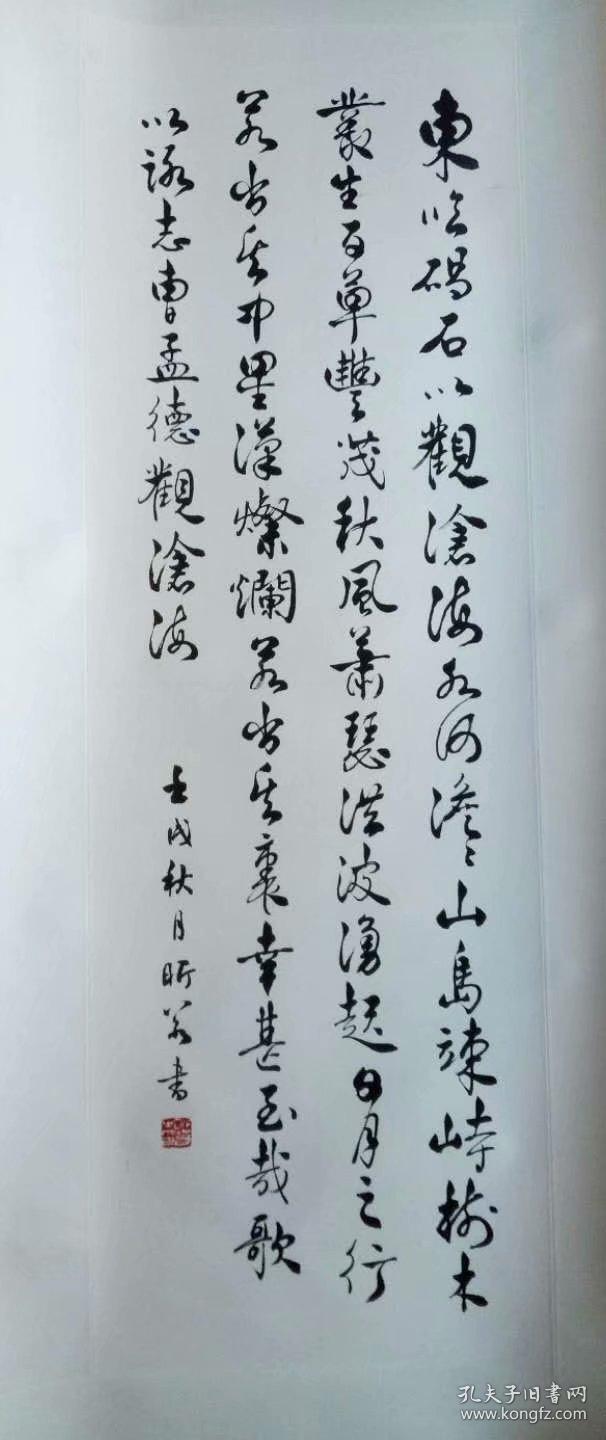 東臨碣石以觀滄海水何澹々山島竦峙樹木
叢生百草豐茂秋風蕭瑟洪波湧起日月之行
若出其中星漢燦爛若出其裏幸甚至哉歌
以詠志曹孟德觀滄海
壬戌秋月昕書
孔夫子旧书网
www.kongfz.com